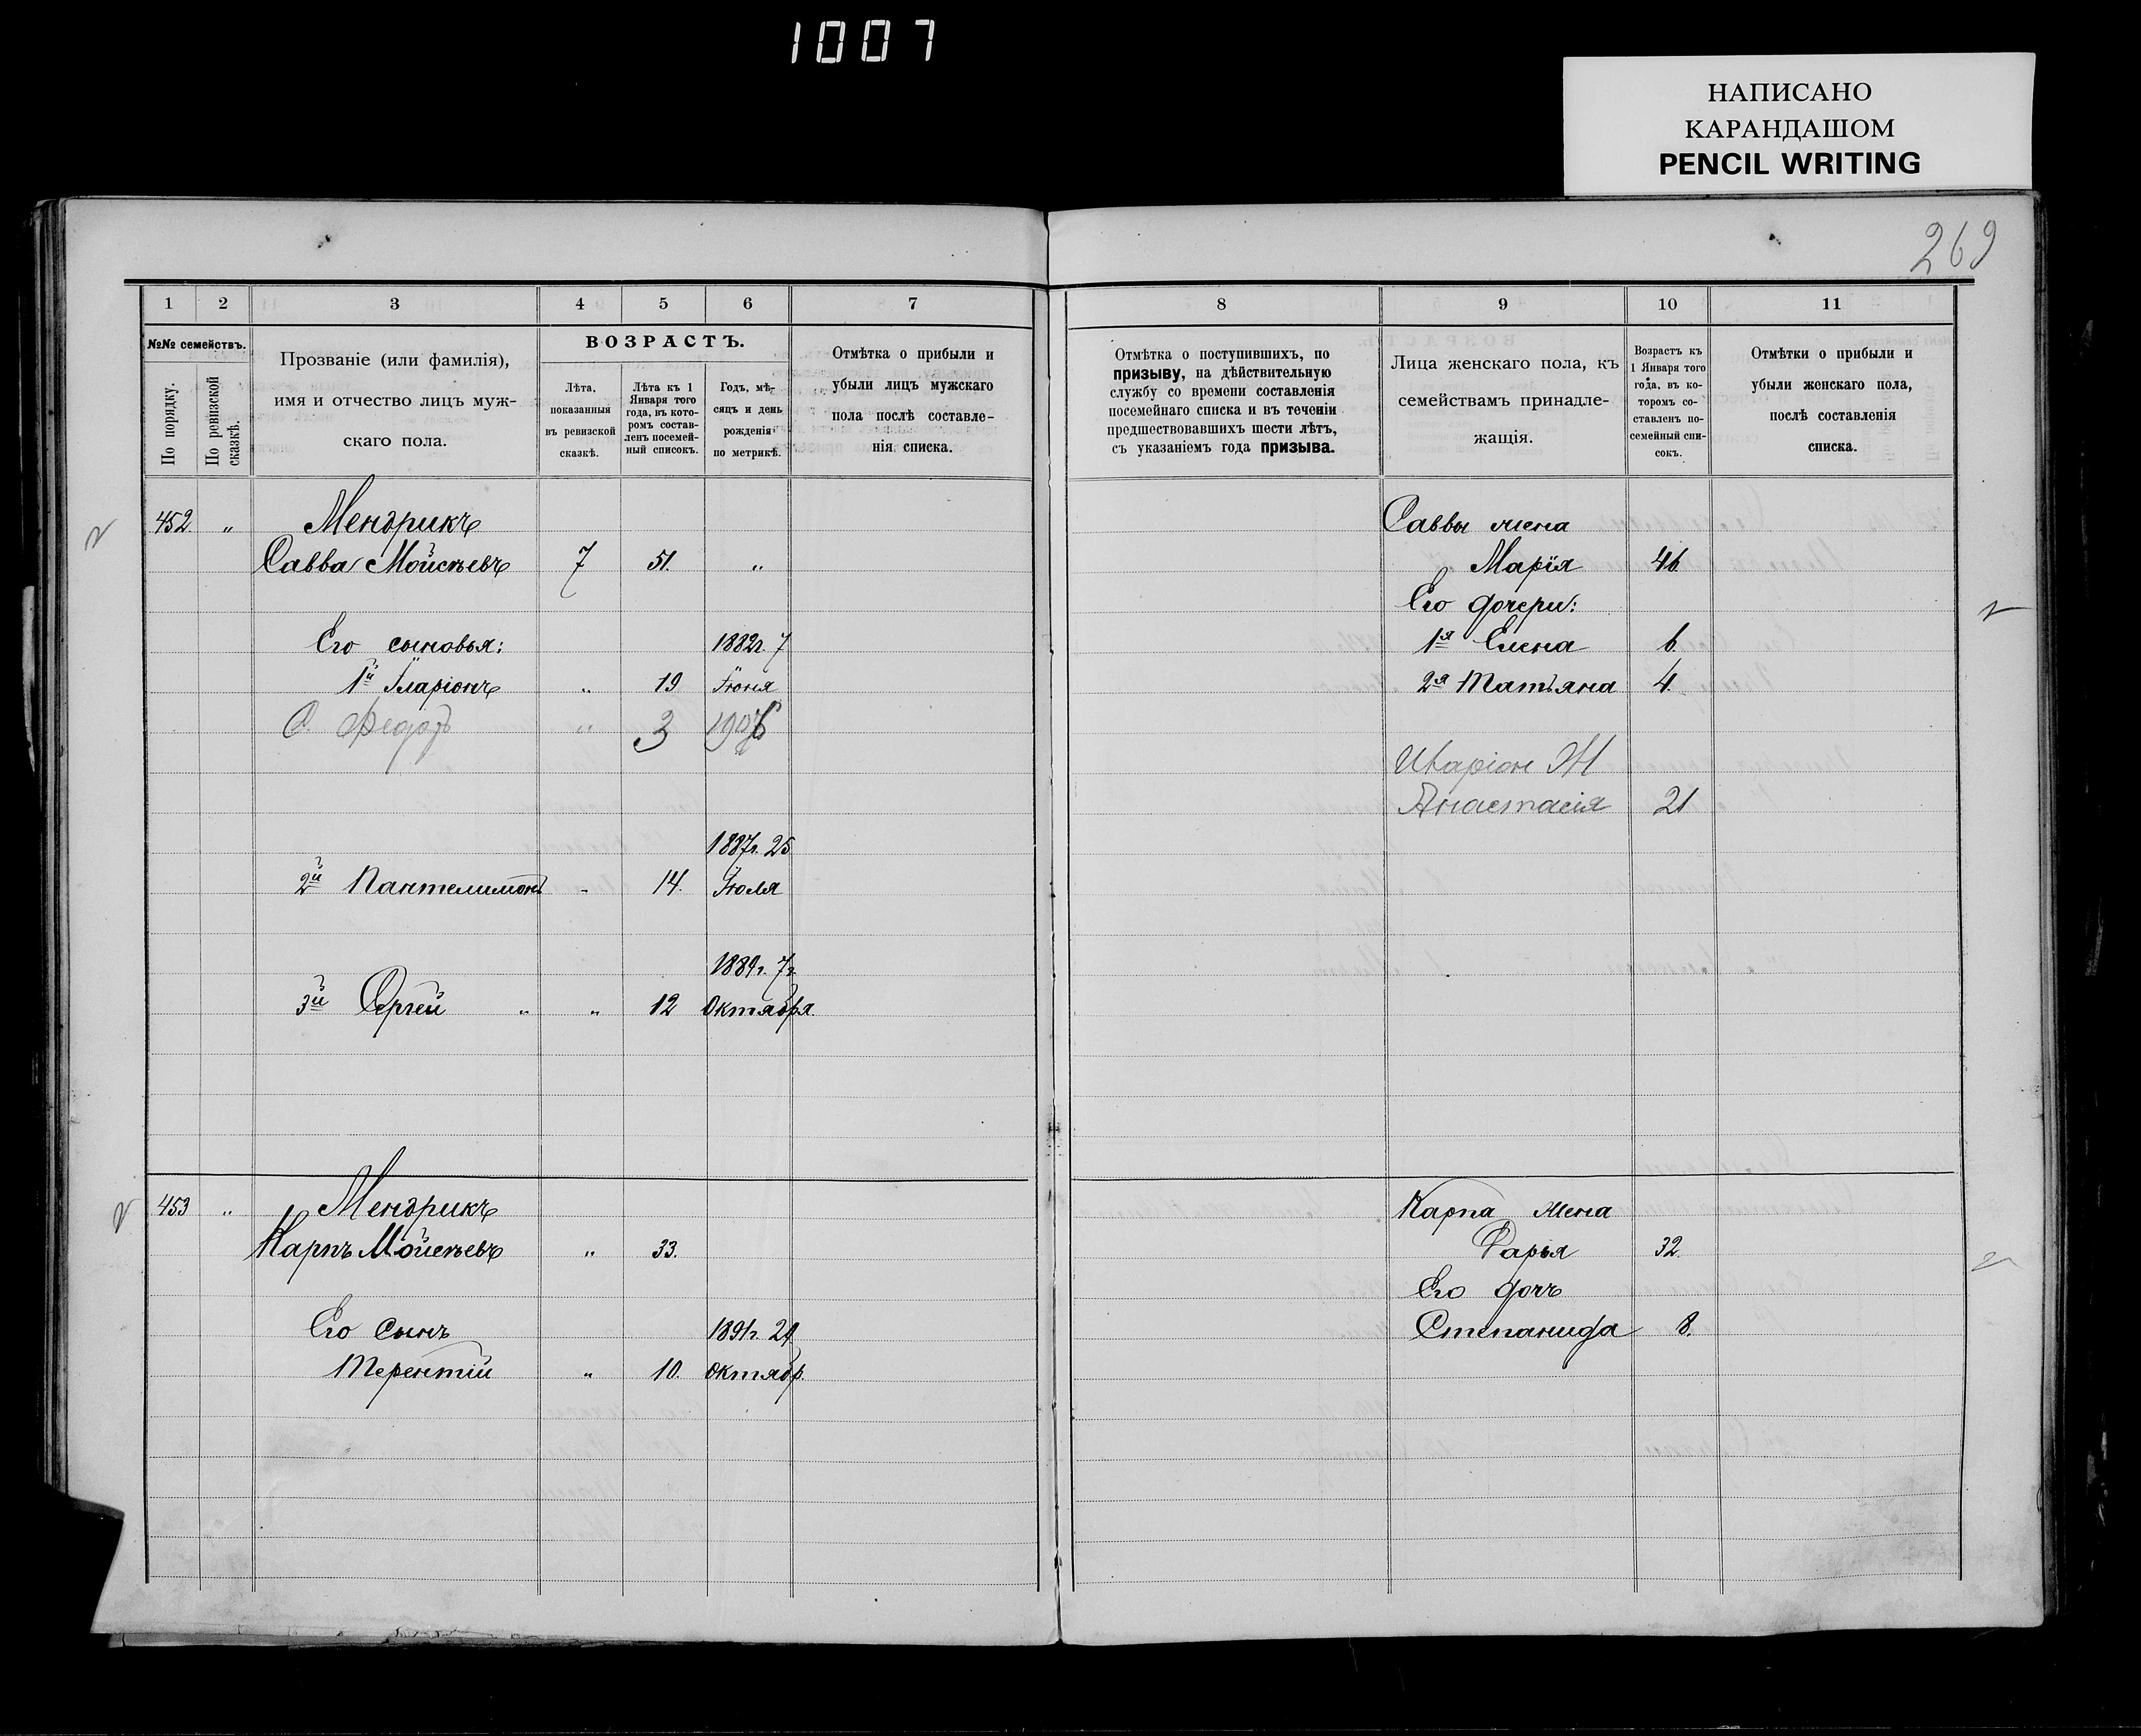 1007
НАПИСАНО
КАРАНДАШОМ
PENCIL WRITING
269
1 2 3 4 5 6 7
№№ семействъ.
По порядку.
По ревизской сказкѣ.
Прозваніе (или фамилія),
имя и отчество лицъ муж-
скаго пола.
ВОЗРАСТЪ.
Лѣта,
показанныя
въ ревизской
сказкѣ.
Лѣта къ 1
Января того
года, въ кото-
ромъ состав-
ленъ посемей-
ный списокъ.
Годъ, мѣ-
сяцъ и день
рожденія
по метрикѣ.
Отмѣтка о прибыли и
убыли лицъ мужскаго
пола послѣ составле-
нія списка.
452 „ Мендрикъ
Савва Мойсѣевъ 7 51. „
Его сыновья: 1882г. 7
1й Іларіонъ „ 19 Іюня
С. Федотъ „ 3 190
1887г. 25
2й Пантелимонъ - 14. Іюля
1889г. 7г.
3й Сергей „ „ 12 Октября.
453 „ Мендрикъ
Карпъ Мойсѣевъ „ 33.
Его сынъ 1891г. 29
Терентій „ 10. Октябр.
8 9 10 11
Отмѣтка о поступившихъ, по
призыву, на дѣйствительную
службу со времени составленія
посемейнаго списка и въ теченіи
предшествовавшихъ шести лѣтъ,
съ указаніемъ года призыва.
Лица женскаго пола, къ
семействамъ принадле-
жащія.
Возрастъ къ
1 Января того
года, въ ко-
торомъ со-
ставленъ по-
семейный спи-
сокъ.
Отмѣтки о прибыли и
убыли женскаго пола,
послѣ составленія
списка.
Саввы жена
Марія 46
Его дочери:
1я Елена 6.
2я Татьяна 4.
Иларіон Ж
Анастасія 21
Карпа жена
Дарья 32.
Его дочь
Степанида 8.